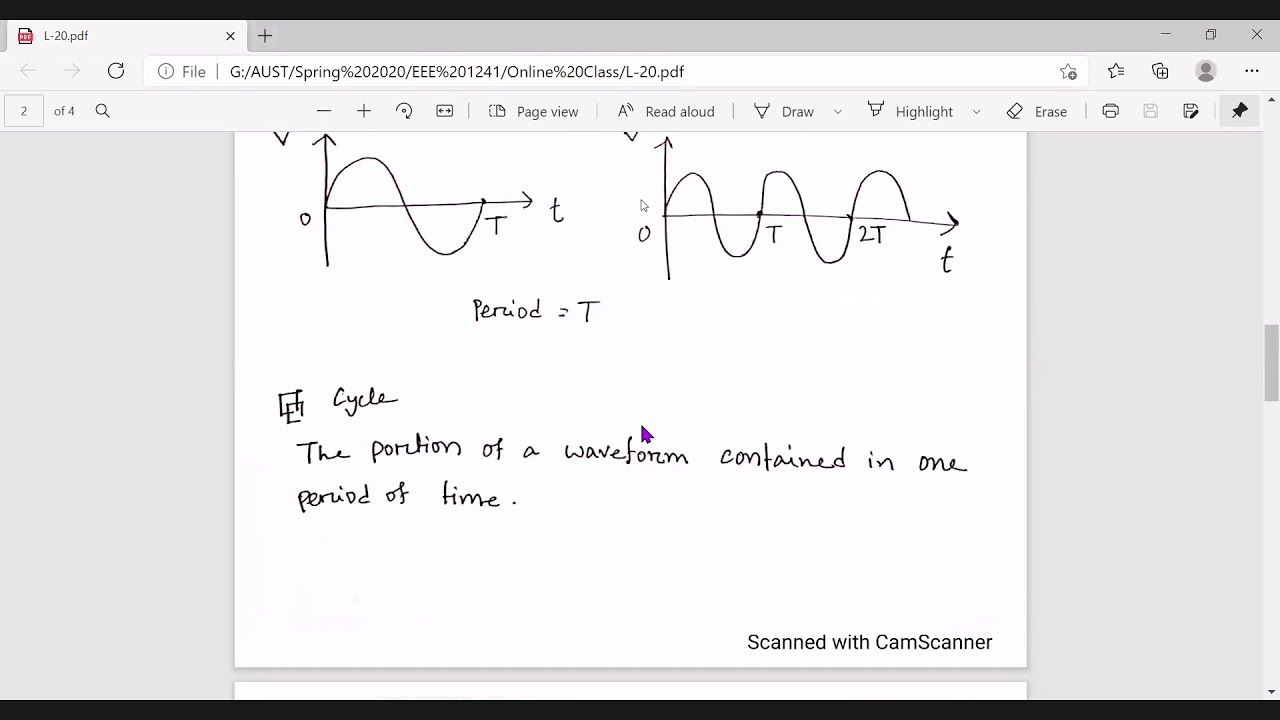 L-20.pdf
File
G:/AUST/Spring%202020/EEE%201241/Online%20Class/L-20.pdf
2 of 4
Page view
Read aloud
Draw
Highlight
Erase
V
V
0
T
t
0
T
2T
t
Period = T
Cycle
The portion of a waveform contained in one
period of time.
Scanned with CamScanner